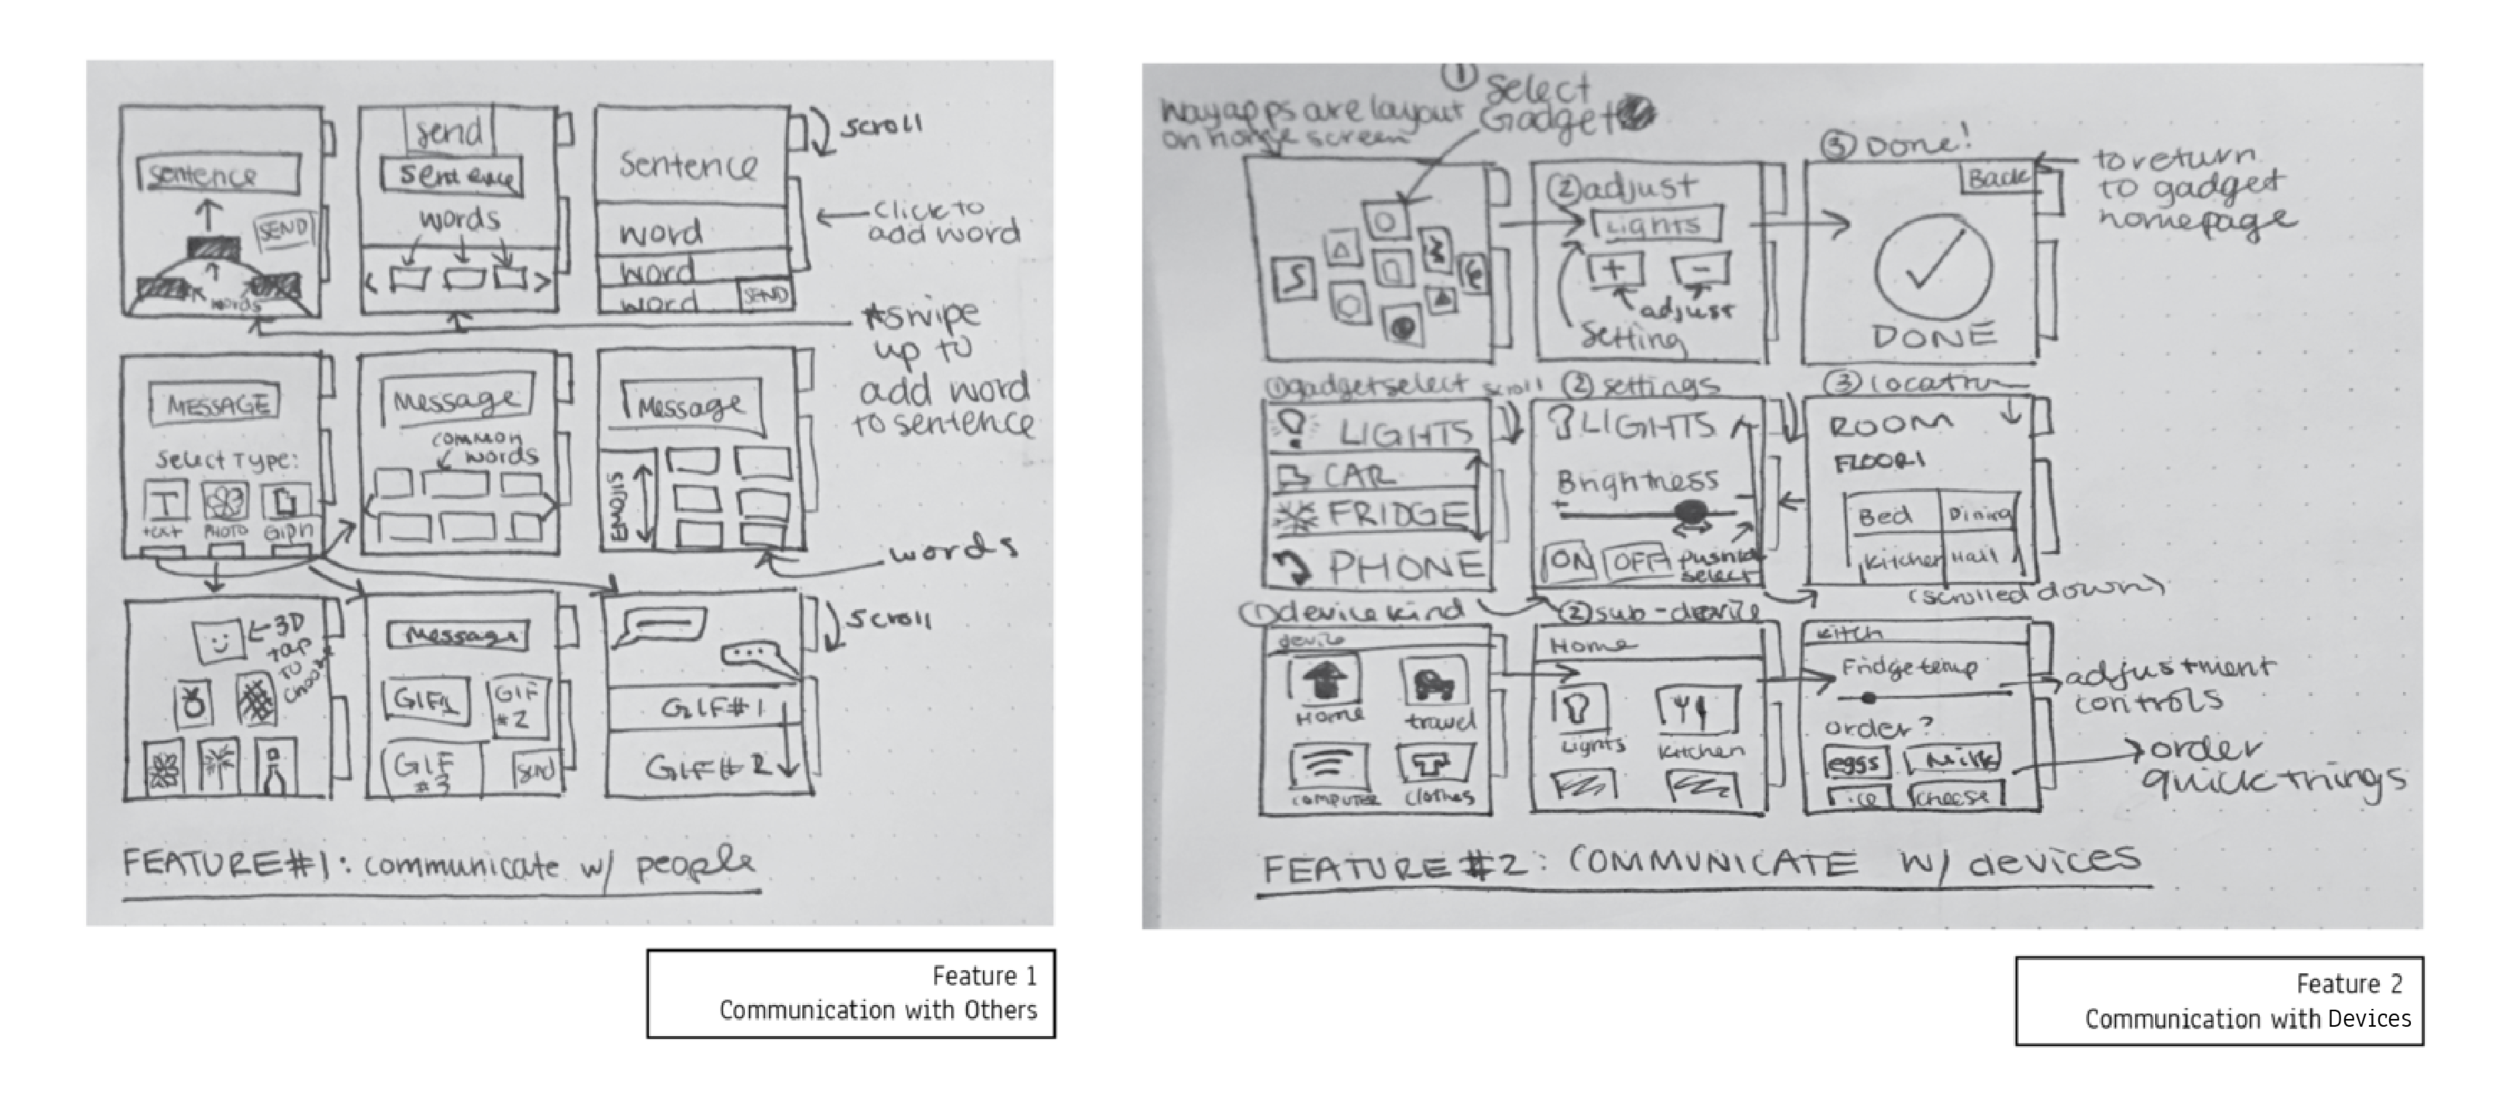 sentence
SEND
words
send
sentence
words
sentence
word
word
word
SEND
scroll
click to
add word
*swipe
up to
add word
to sentence
MESSAGE
select Type:
T
text
PHOTO
Message
common
words
Message
EMOJIS
words
3D
tap
to
choose
Message
GIF1
GIF
#2
GIF
#3
send
GIF#1
GIF#2
scroll
FEATURE#1: communicate w/ people
Feature 1
Communication with Others
way apps are layout
on home screen
① Select
Gadget
② adjust
Lights
+ -
adjust
Setting
③ Done!
Back
DONE
to return
to gadget
homepage
① gadget select
scroll
LIGHTS
CAR
FRIDGE
PHONE
② settings
LIGHTS
Brightness
+ -
ON OFF
push to
select
③
ROOM
FLOOR1
Bed Dining
Kitchen Hall
(scrolled down)
① device kind
device
Home
travel
computer
clothes
② sub-device
Home
Lights
Kitchen
kitch
Fridge temp
order?
eggs milk
cheese
adjustment
controls
order
quick things
FEATURE #2: COMMUNICATE w/ devices
Feature 2
Communication with Devices